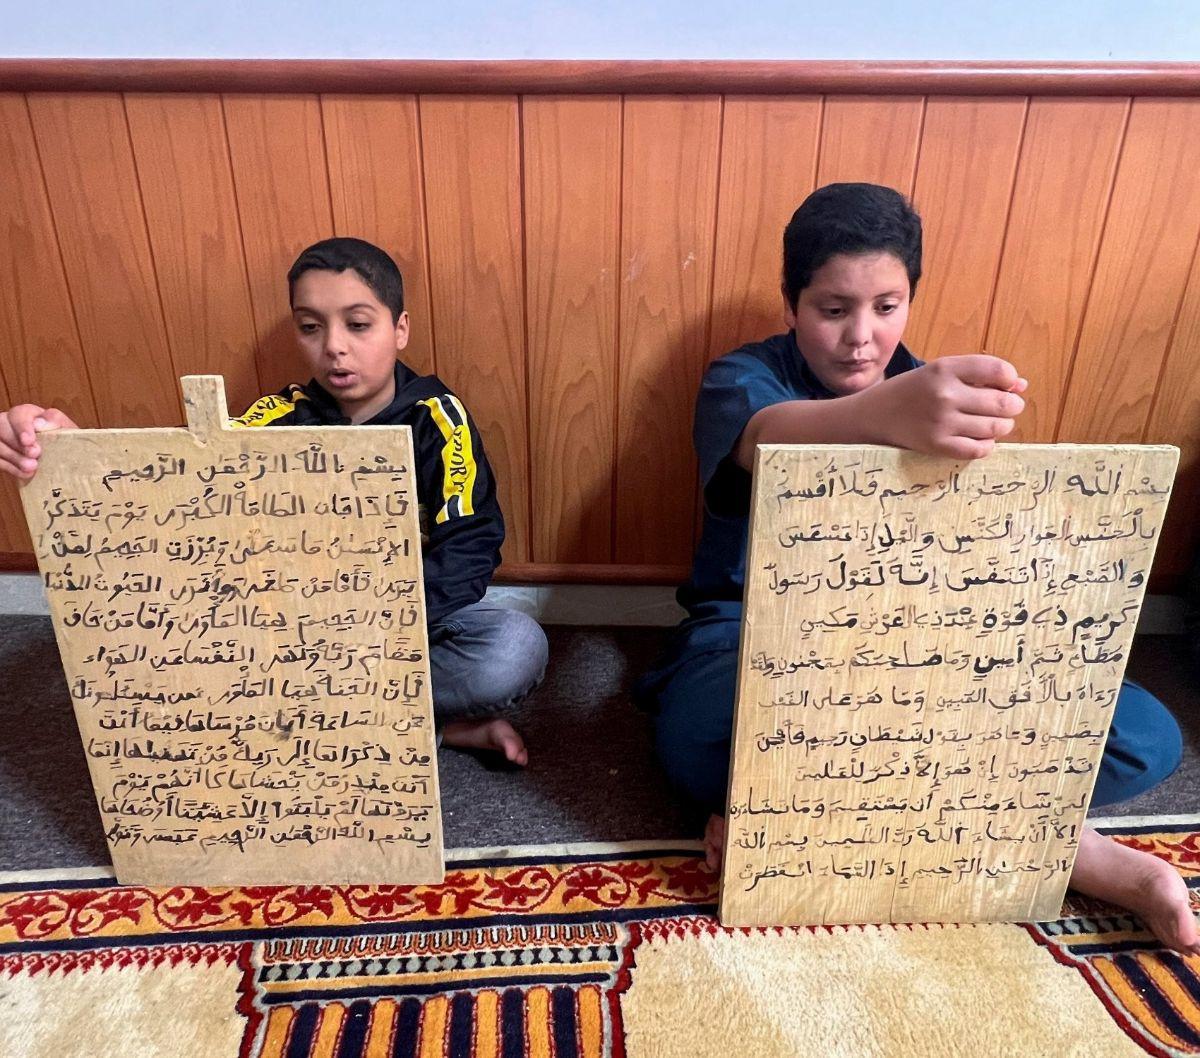 بِسْمِ اللَّهِ الرَّحْمَٰنِ الرَّحِيمِ
الطَّامَّةُ الْكُبْرَى يَوْمَ يَتَذَكَّرُ
الإِنْسَٰنُ مَا سَعَىٰ وَبُرِّزَتِ الْجَحِيمُ لِمَنْ
يَرَىٰ فَأَمَّا مَنْ طَغَىٰ
فَإِنَّ الْجَحِيمَ هِيَ الْمَأْوَىٰ وَأَمَّا مَنْ خَافَ
مَقَامَ رَبِّهِ وَنَهَى النَّفْسَ عَنِ الْهَوَاء
فَإِنَّ الْجَنَّةَ هِيَ الْمَأْوَىٰ
عَنِ السَّاعَةِ أَيَّانَ مُرْسَاهَا فِيمَا أَنْتَ
مِنْ ذِكْرَاهَا إِلَى رَبِّكَ إِنَّمَا
أَنْتَ مُنْذِرُ مَنْ يَخْشَاهَا كَأَنَّهُمْ يَوْمَ
يَرَوْنَهَا لَمْ يَلْبَثُوا إِلاَّ عَشِيَّتًا أَوْ ضُحَاهَا
بِسْمِ اللَّهِ الرَّحْمَٰنِ الرَّحِيمِ عَبَسَ
بِسْمِ اللَّهِ الرَّحْمَٰنِ الرَّحِيمِ فَلَا أُقْسِمُ
بِالْخُنَّسِ الْجَوَارِ الْكُنَّسِ وَالَّيْلِ إِذَا عَسْعَسَ
وَالصُّبْحِ إِذَا تَنَفَّسَ إِنَّهُ لَقَوْلُ رَسُولٍ
كَرِيمٍ ذِي قُوَّةٍ عِنْدَ ذِي الْعَرْشِ مَكِينٍ
مُطَاعٍ ثَمَّ أَمِينٍ وَمَا صَاحِبُكُمْ بِمَجْنُونٍ وَلَقَدْ
رَءَاهُ بِالْأُفُقِ الْمُبِينِ وَمَا هُوَ عَلَى الْغَيْبِ
بِضَنِينٍ وَمَا هُوَ بِقَوْلِ شَيْطَانٍ رَجِيمٍ فَأَيْنَ
تَذْهَبُونَ إِنْ هُوَ إِلاَّ ذِكْرٌ لِلْعَٰلَمِينَ
لِمَنْ شَاءَ مِنْكُمْ أَنْ يَسْتَقِيمَ وَمَا تَشَاءُونَ
إِلاَّ أَنْ يَشَاءَ اللَّهُ رَبُّ الْعَٰلَمِينَ بِسْمِ اللَّهِ
الرَّحْمَٰنِ الرَّحِيمِ إِذَا السَّمَاءُ انْفَطَرَتْ